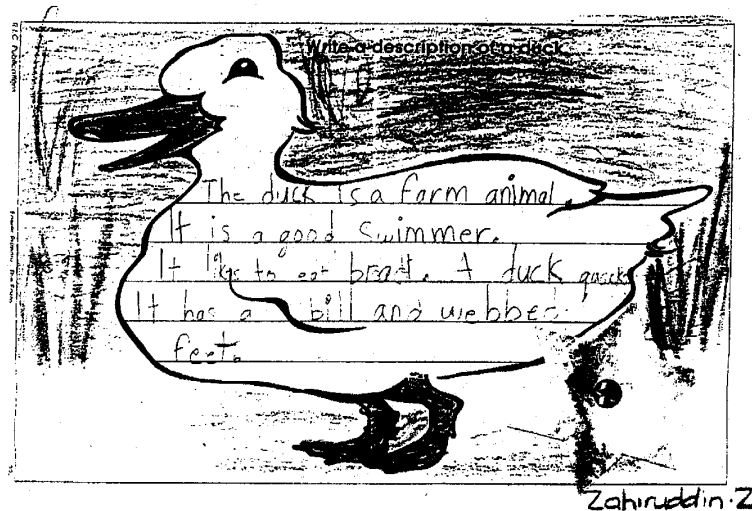 Write a description of a duck.
The duck is a farm animal.
It is a good swimmer.
It likes to eat bread. A duck quacks
It has a bill and webbed
feet.
Zahiruddin.Z